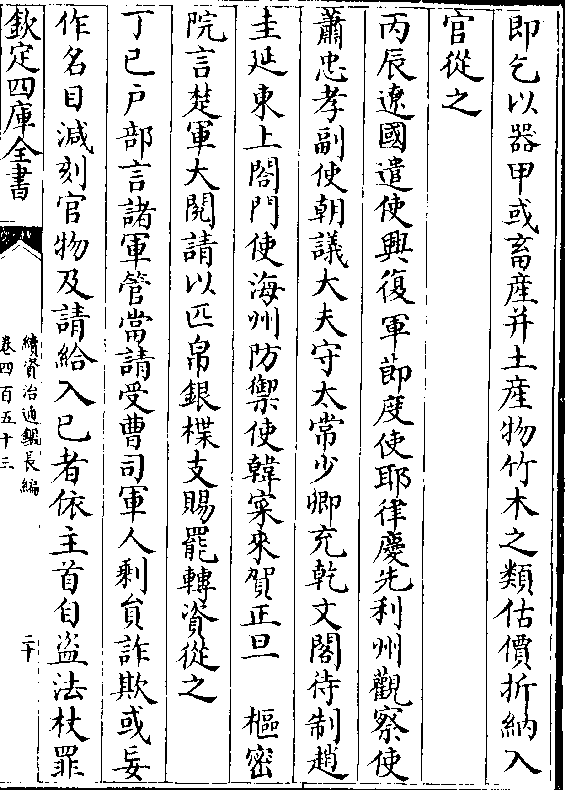 即乞以器甲或畜産并土産物竹木之類估價折納入
官從之
丙辰遼國遣使興復軍節度使耶律慶先利州觀察使
蕭忠孝副使朝議大夫守太常少卿充乾文閣待制趙
圭延東上閣門使海州防禦使韓宷來賀正旦　樞密
院言楚軍大閱請以匹帛銀楪支賜罷轉資從之
丁巳户部言諸軍管當請受曹司軍人剩員詐欺或妄
作名目減刻官物及請給入已者依主首自盗法杖罪
欽定四庫全書
續資治通鑑長編
卷四百五十三
二十